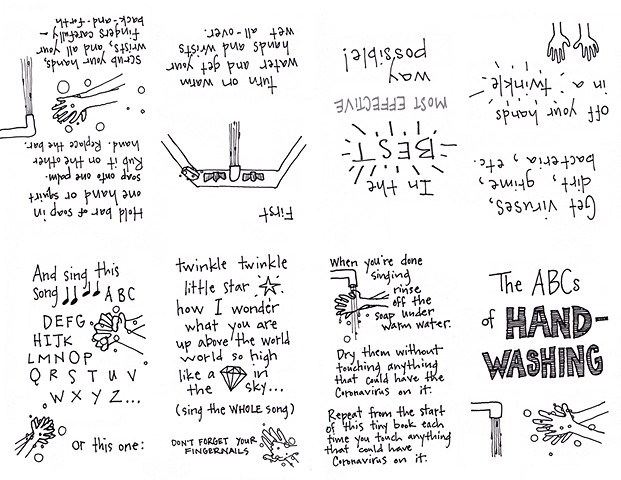 The ABCs
of HAND-
WASHING
Get viruses,
dirt, grime,
bacteria, etc.
off your hands
in a twinkle.
In the
BEST
MOST EFFECTIVE
way
possible!
First
turn on warm
water and get your
hands and wrists
wet all-over.
Hold bar of soap in
one hand or squirt
soap onto one palm.
Rub it on the other
hand. Replace the bar.
Scrub your hands,
wrists, and all your
fingers carefully –
back-and-forth
And sing this
song ABC
DEFG
HIJK
LMNOP
QRSTUV
WXYZ...
or this one:
twinkle twinkle
little star
how I wonder
what you are
up above the world
world so high
like a in
the sky...
(sing the WHOLE song)
DON'T FORGET YOUR
FINGERNAILS
When you're done
singing
rinse
off the
soap under
warm water.
Dry them without
touching anything
that could have the
Coronavirus on it.
Repeat from the start
of this tiny book each
time you touch anything
that could have
Coronavirus on it.